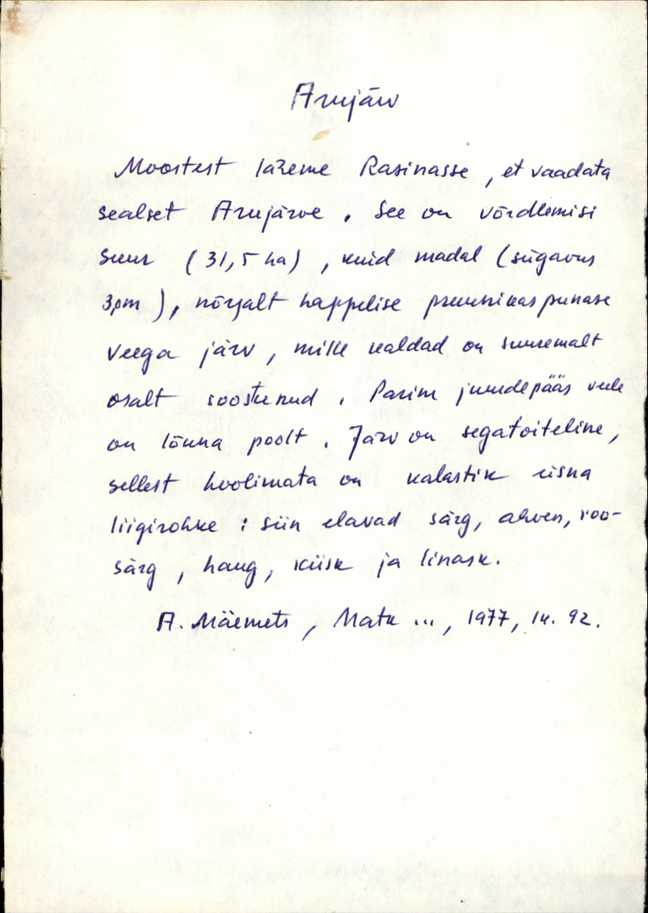 Arujärv
Moostest läheme Rasinasse, et vaadata
sealset Arujärve. See on võrdlemisi
suur (31,5 ha), kuid madal (sügavus
3 m), nõrgalt happelise pruunikaspunase
veega järv, mille kaldad on suuremalt
osalt soostunud. Parim juurdepääs veele
on lõuna poolt. Järv on segatoiteline,
sellest hoolimata on kalastik üsna
liigirohke: siin elavad särg, ahven, roo-
särg, haug, kiisk ja linask.
A. Mäemets, Matk ..., 1977, lk. 92.